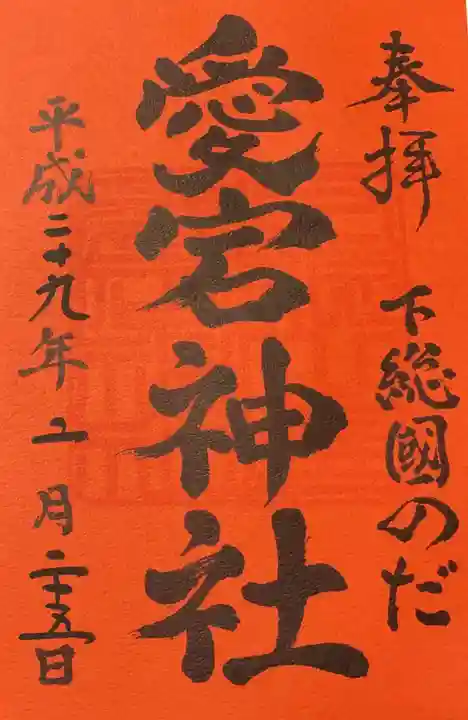 奉拝 下総國のだ
愛宕神社
平成二十九年 五 月二十五日